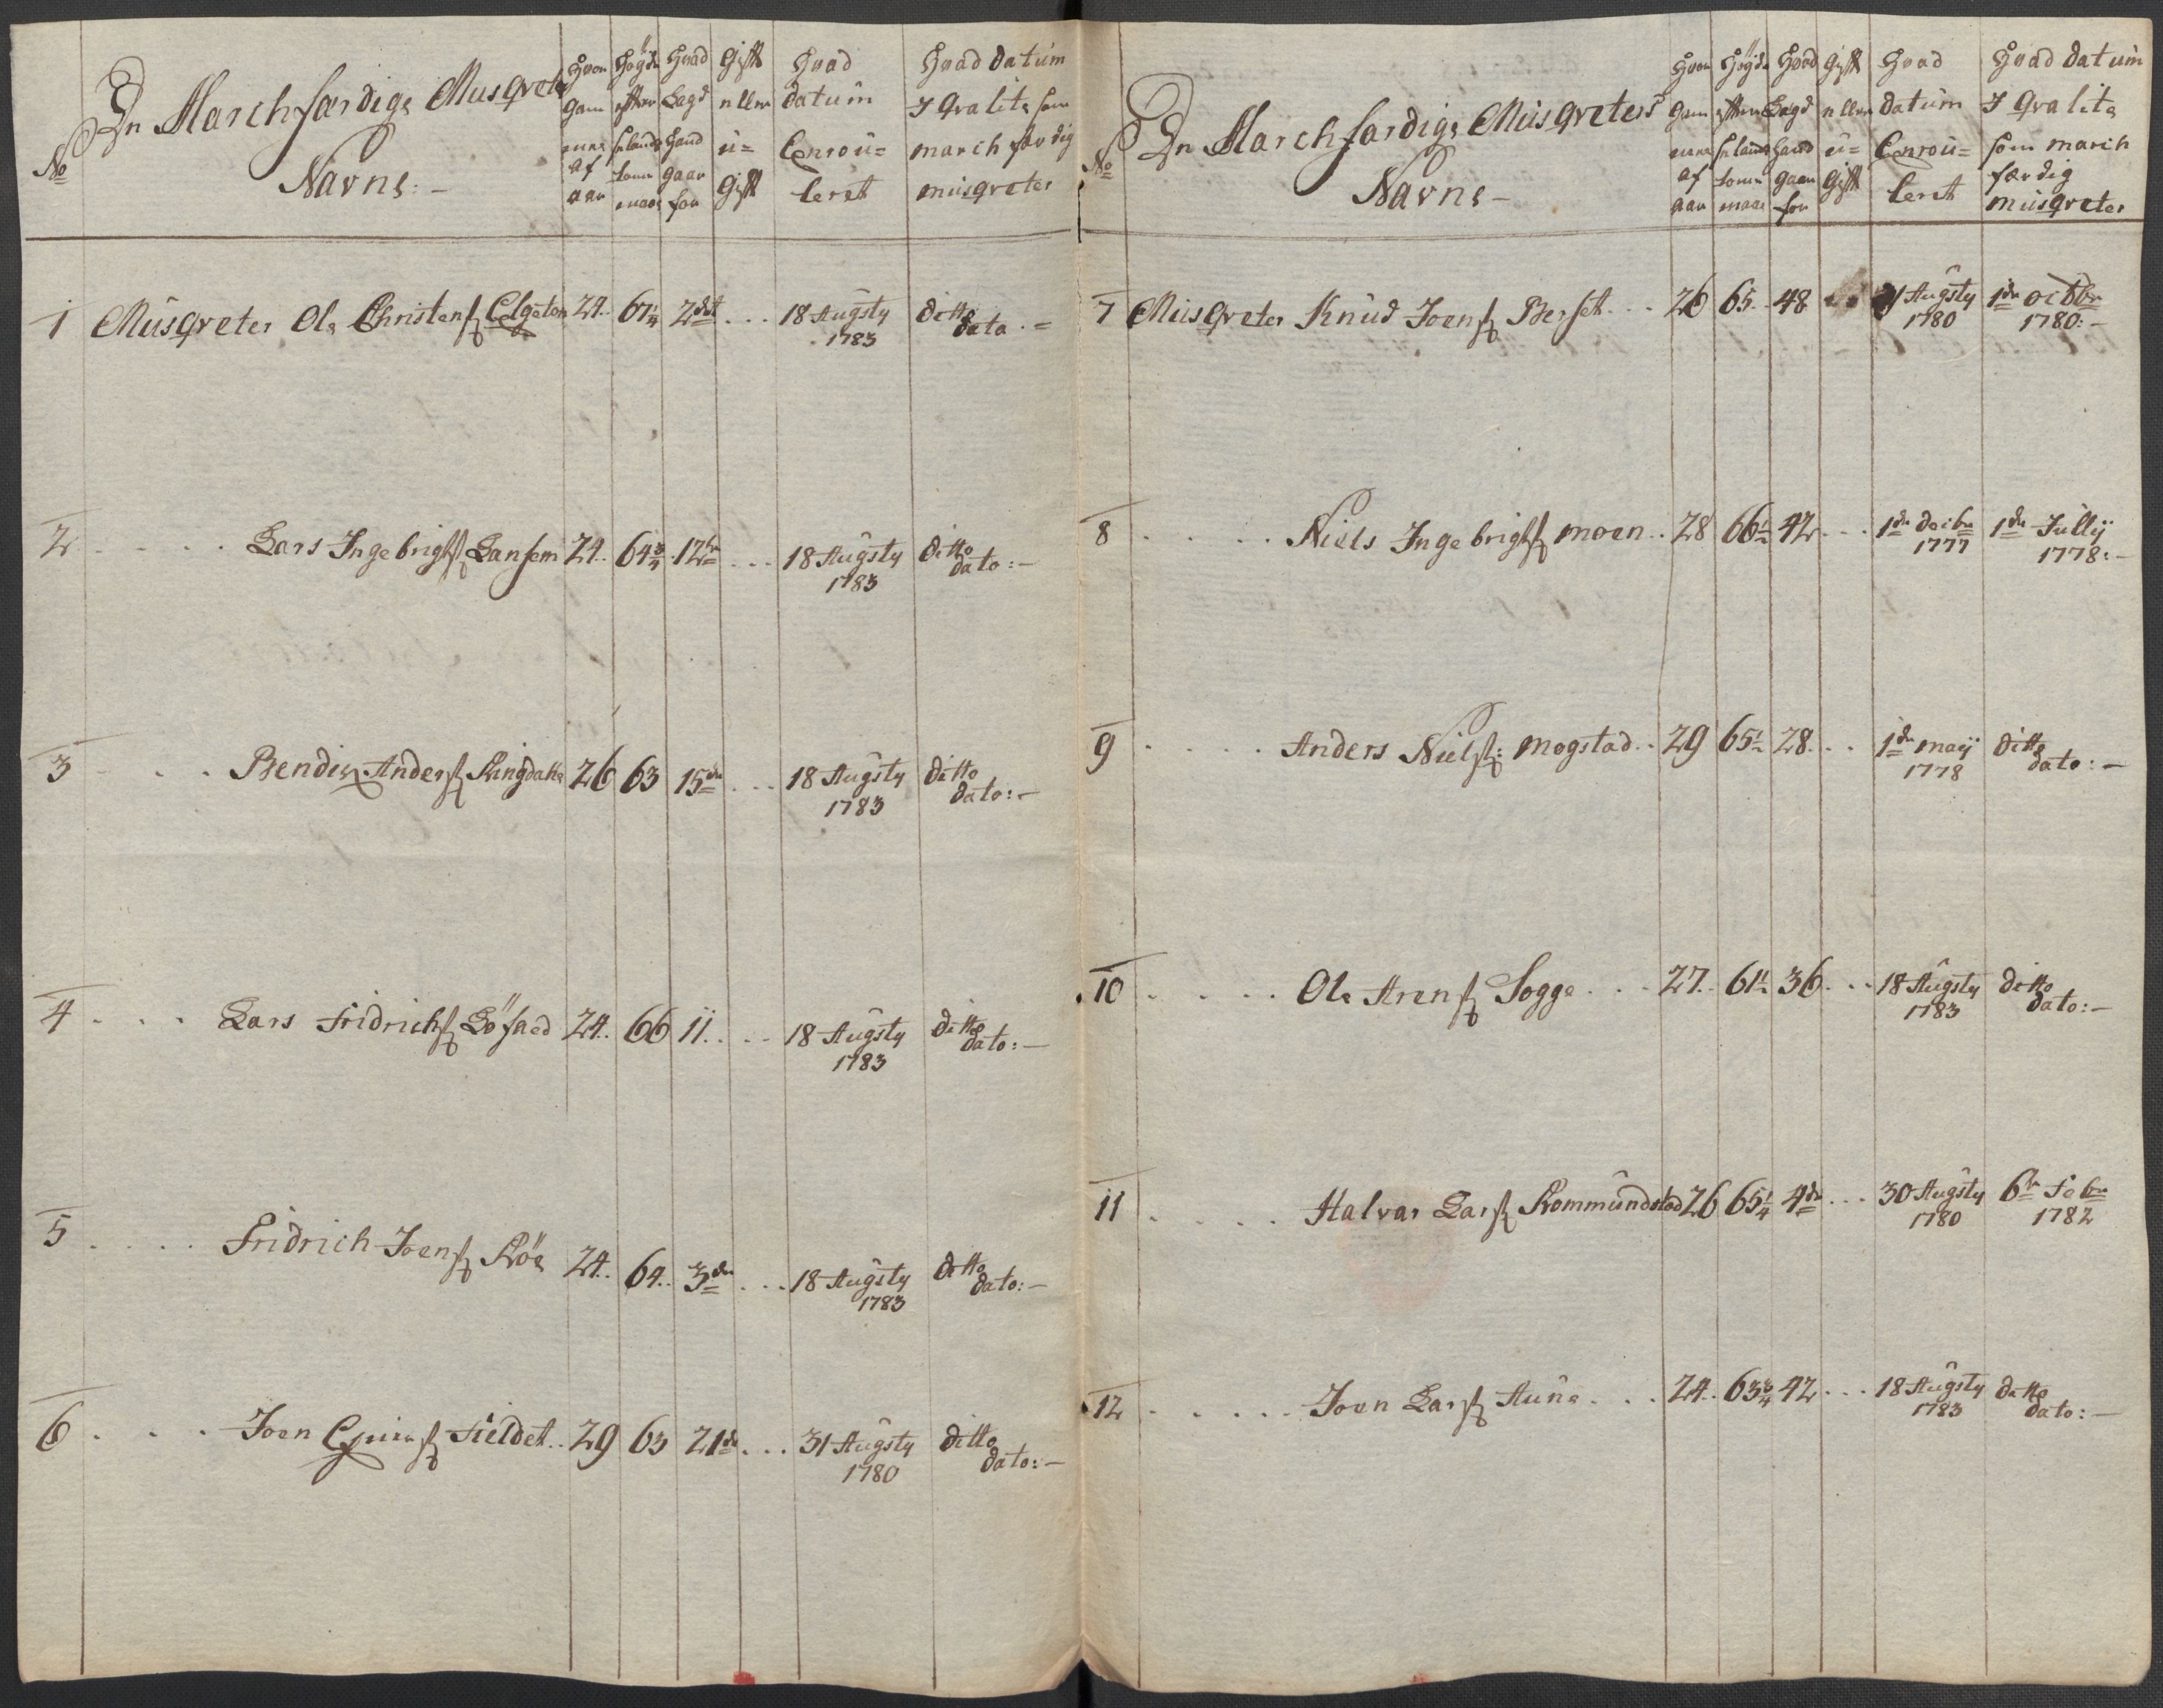 No
De Marchfærdige Musqveters
Navne: -
Hvor gam mel af aar
Høyde efter selands tomme maal
Hvad Lægd hand gaar for
Gift eller u= Gift
Hvad datum Enrou= leret
Hvad datum I Qvalite som march færdig musqveter
1 Musqveter Ole Christens: 24.. 67¼ 2det ... 18 Augsty 1783 ditto dato . =
2 .... Lars Ingebrigts: Lansem 24.. 64¾ 12te ... 18 Augsty 1783 ditto dato: -
3 ... Bendix Anders: Ringdalle 26 63 15de ... 18 Augsty 1783 ditto dato: -
4 ... Lars Fridrichs: Löfaed 24.. 66 11.. .. 18 Augsty 1783 ditto dato: -
5 .... Fridrich Joens: Röe 24.. 64.. 3de ... 18 Augsty 1783 ditto dato: -
6 ... Joen Fieldet.. 29 63 21de ... 31 Augsty 1780 ditto dato: -
No
De Marchfærdige Musqveters
Navne -
Hvor gam mel af aar
Høyde efter selands tomme maal
Hvad Lægd hand gaar for
Gift eller u= Gift
Hvad datum Enrou= leret
Hvad datum I Qvalite som march færdig musqveter
7 Musqveter Knud Joens: Berset... 26 65.. 48 Augsty 1780 1de octbr 1780: -
8 .... Niels Ingebrigts: moen.. 28 66½ 42 ... 1de decbr 1777 1de Jullij 1778: -
9 .... Anders Niels: mogstad.. 29 65½ 28... 1de maij 1778 ditto dato: -
10 .... Ole Arens: Sogge... 27.. 61½ 36... 18 Augsty 1783 ditto dato: -
11 .... Halvar Lars: Rommundstad 26 65¼ 4de ... 30 Augsty 1780 6te Febr 1782
12 ..... Joen Lars: Aune... 24.. 63¾ 42 ... 18 Augsty 1783 ditto dato: -